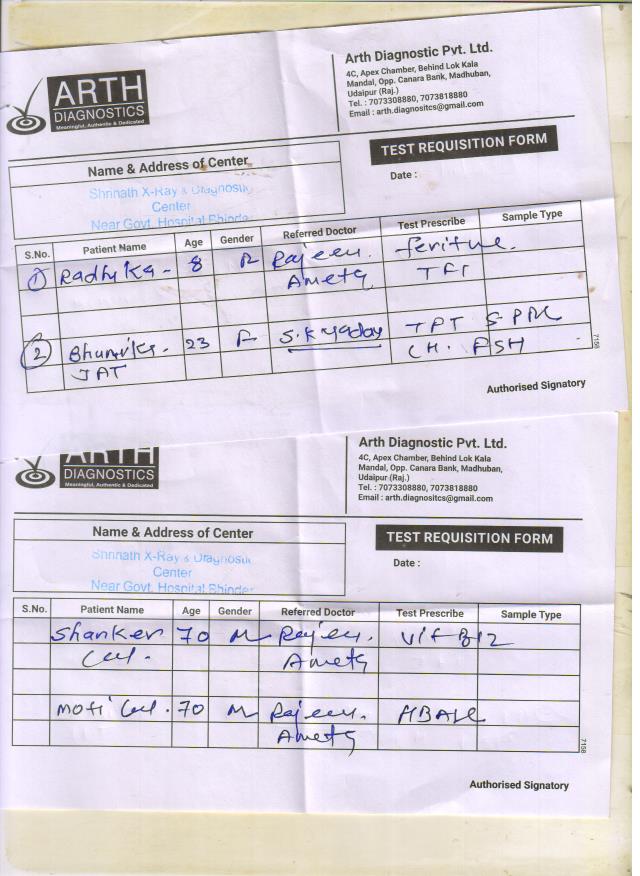 ARTH
DIAGNOSTICS
Meaningful, Authentic & Dedicated
Arth Diagnostic Pvt. Ltd.
4C, Apex Chamber, Behind Lok Kala
Mandal, Opp. Canara Bank, Madhuban,
Udaipur (Raj.)
Tel. : 7073308880, 7073818880
Email : arth.diagnositcs@gmail.com
TEST REQUISITION FORM
Name & Address of Center
Date :
Shrinath X-Ray & Diagnostic
Center
Near Govt. Hospital Bhinder
S.No. Patient Name Age Gender Referred Doctor Test Prescribe Sample Type
1 Radhika - 8 Rajeev.
Ameta TFT
2 Bhumika - 23 F S.K Yadav TPT S. PRL
JAT LH. FSH
7158
Authorised Signatory
ARTH
DIAGNOSTICS
Meaningful, Authentic & Dedicated
Arth Diagnostic Pvt. Ltd.
4C, Apex Chamber, Behind Lok Kala
Mandal, Opp. Canara Bank, Madhuban,
Udaipur (Raj.)
Tel. : 7073308880, 7073818880
Email : arth.diagnositcs@gmail.com
Name & Address of Center
TEST REQUISITION FORM
Shrinath X-Ray & Diagnostic
Center
Near Govt. Hospital Bhinder
Date :
S.No. Patient Name Age Gender Referred Doctor Test Prescribe Sample Type
Shanker 70 M Rajeev. Vit B12
Ameta
Moti 70 M Rajeev.
Ameta
7158
Authorised Signatory